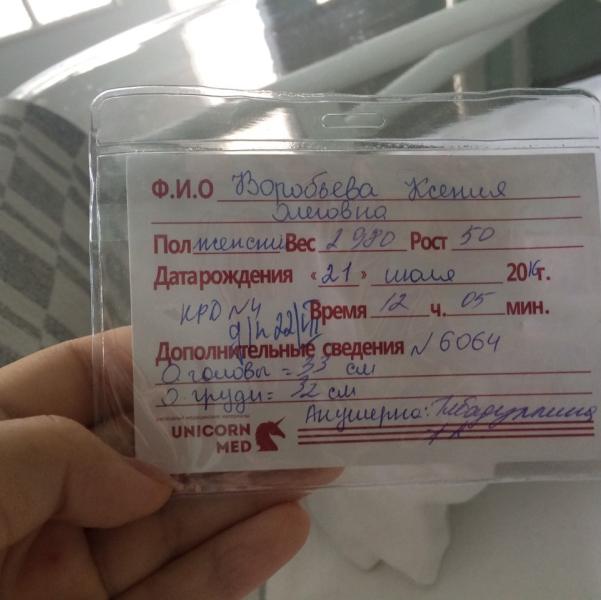 Ф.И.О Воробьева Ксения
Олеговна
Пол женский Вес 2980 Рост 50
Дата рождения «21» июля 2016г.
КРО N4 Время 12 ч. 05 мин.
Дополнительные сведения N 6064
О головы = 33 см
О груди = 32 см
Акушерка:
UNICORN
MED